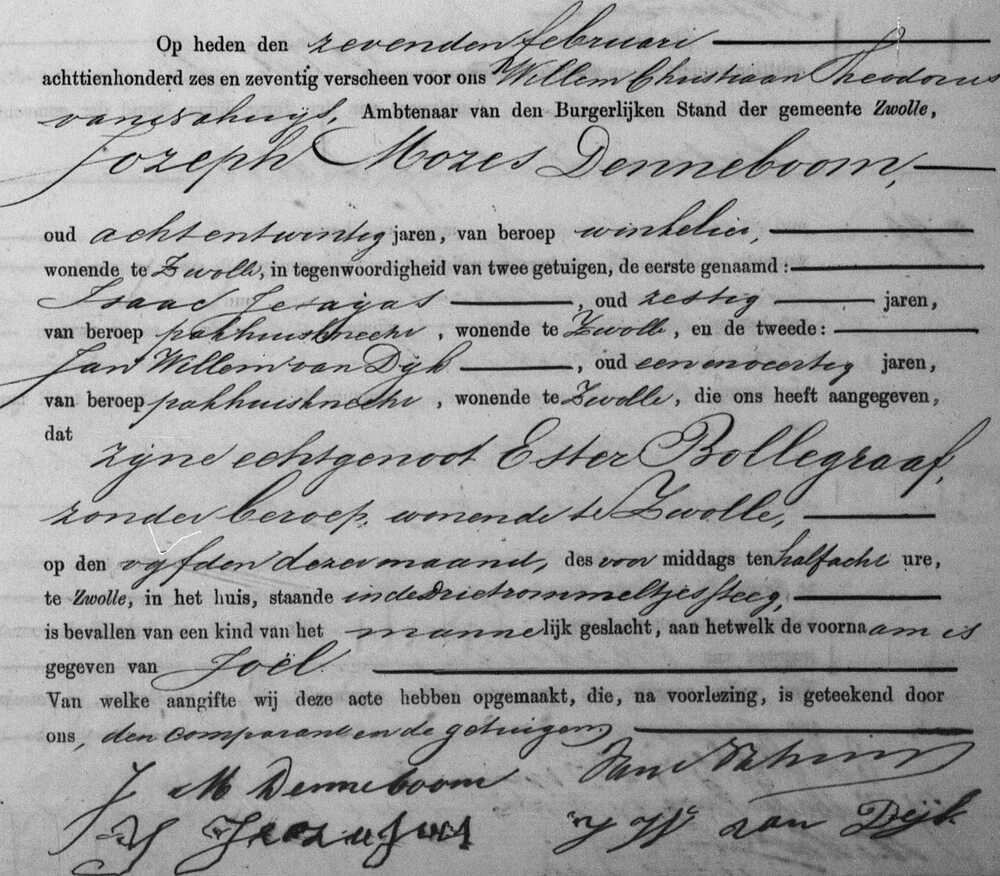 Op heden den zevenden februari
achttienhonderd zes en zeventig verscheen voor ons Willem Christiaan Theodorus
van Ambtenaar van den Burgerlijken Stand der gemeente Zwolle,
Jozeph Mozes Denneboom,
oud achtentwintig jaren, van beroep winkelier,
wonende te Zwolle, in tegenwoordigheid van twee getuigen, de eerste genaamd:
Isaac Jesaijas, oud zestig jaren,
van beroep pakhuisknecht, wonende te Zwolle, en de tweede:
Jan Willem van Dijk, oud eenenveertig jaren,
van beroep pakhuisknecht, wonende te Zwolle, die ons heeft aangegeven,
dat
zijne echtgenoot Ester Bollegraaf,
zonder beroep, wonende te Zwolle,
op den vijfden dezer maand, des voor middags ten half acht ure,
te Zwolle, in het huis, staande in de Drietrommeltjessteeg,
is bevallen van een kind van het mannelijk geslacht, aan hetwelk de voornaam is
gegeven van Joël.
Van welke aangifte wij deze acte hebben opgemaakt, die, na voorlezing, is geteekend door
ons, den comparant en de getuigen
J M Denneboom
J W van Dijk